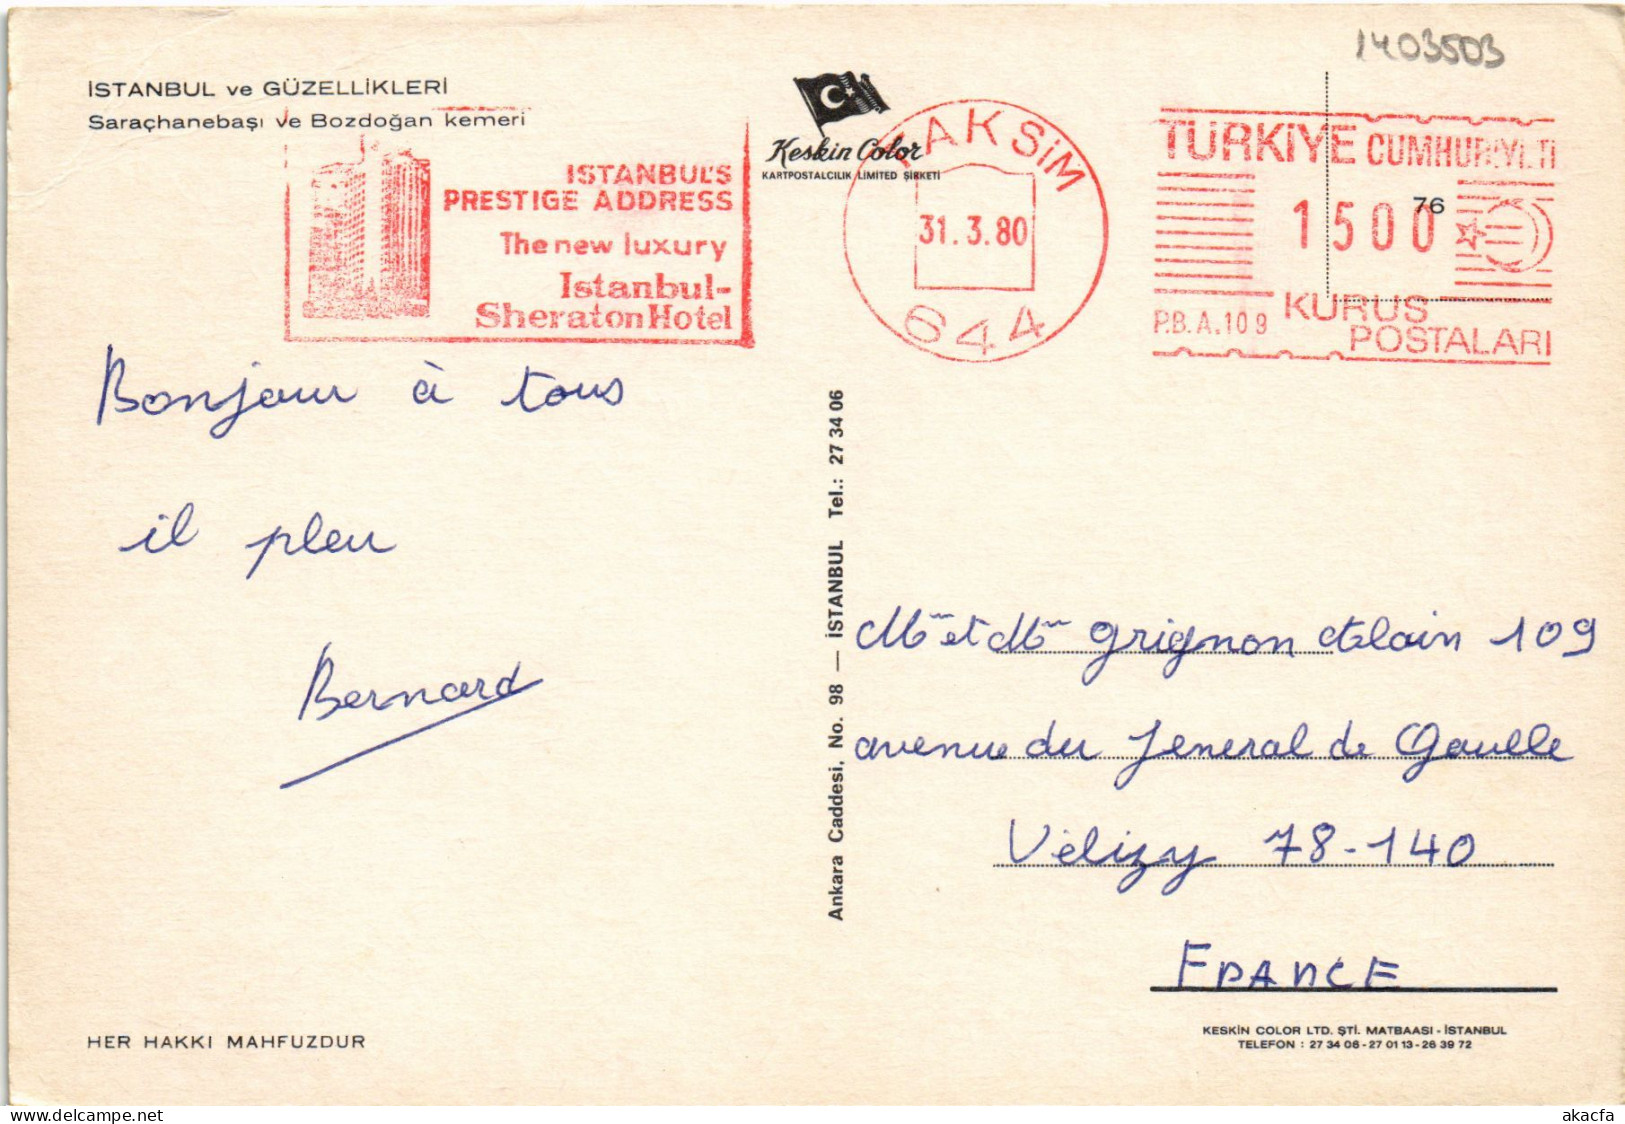 1403503
İSTANBUL ve GÜZELLİKLERİ
Saraçhanebaşı ve Bozdoğan kemeri
ISTANBUL'S
PRESTIGE ADDRESS
The new luxury
Istanbul-
Sheraton Hotel
Keskin Color
KARTPOSTALCILIK LIMITED ŞİRKETİ
TAKSİM
31.3.80
644
TÜRKİYE CUMHURİYETİ
1500
76
P.B.A.109
KURUŞ
POSTALARI
Bonjour à tous
il pleu
Bernard
Ankara Caddesi, No. 98 — İSTANBUL Tel.: 27 34 06
Mr et Mm Grignon Alain 109
avenue du Jeneral de Gaulle
Vélizy 78-140
FRANCE
HER HAKKI MAHFUZDUR
KESKİN COLOR LTD. ŞTİ. MATBAASI - İSTANBUL
TELEFON : 27 34 06 - 27 01 13 - 26 39 72
delcampe.net
akacfa